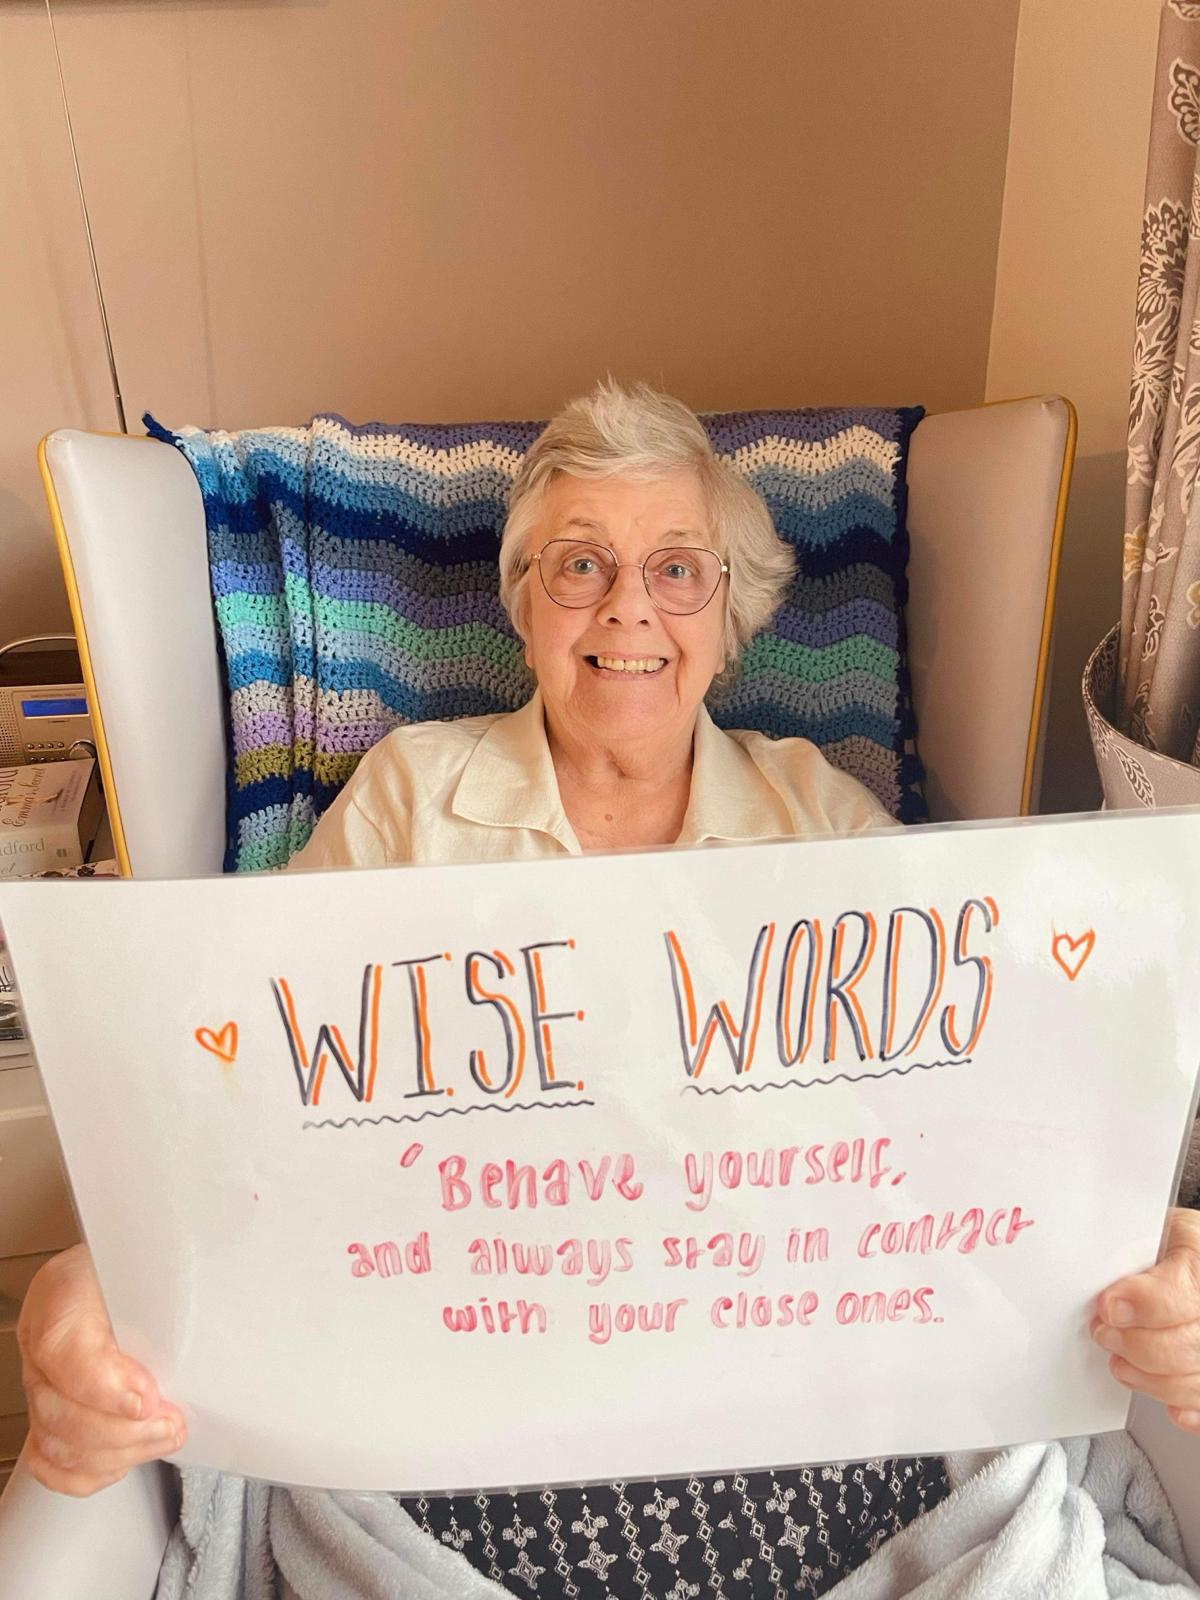 Emma's
dford
WISE WORDS
'Behave yourself,
and always stay in contact
with your close ones.